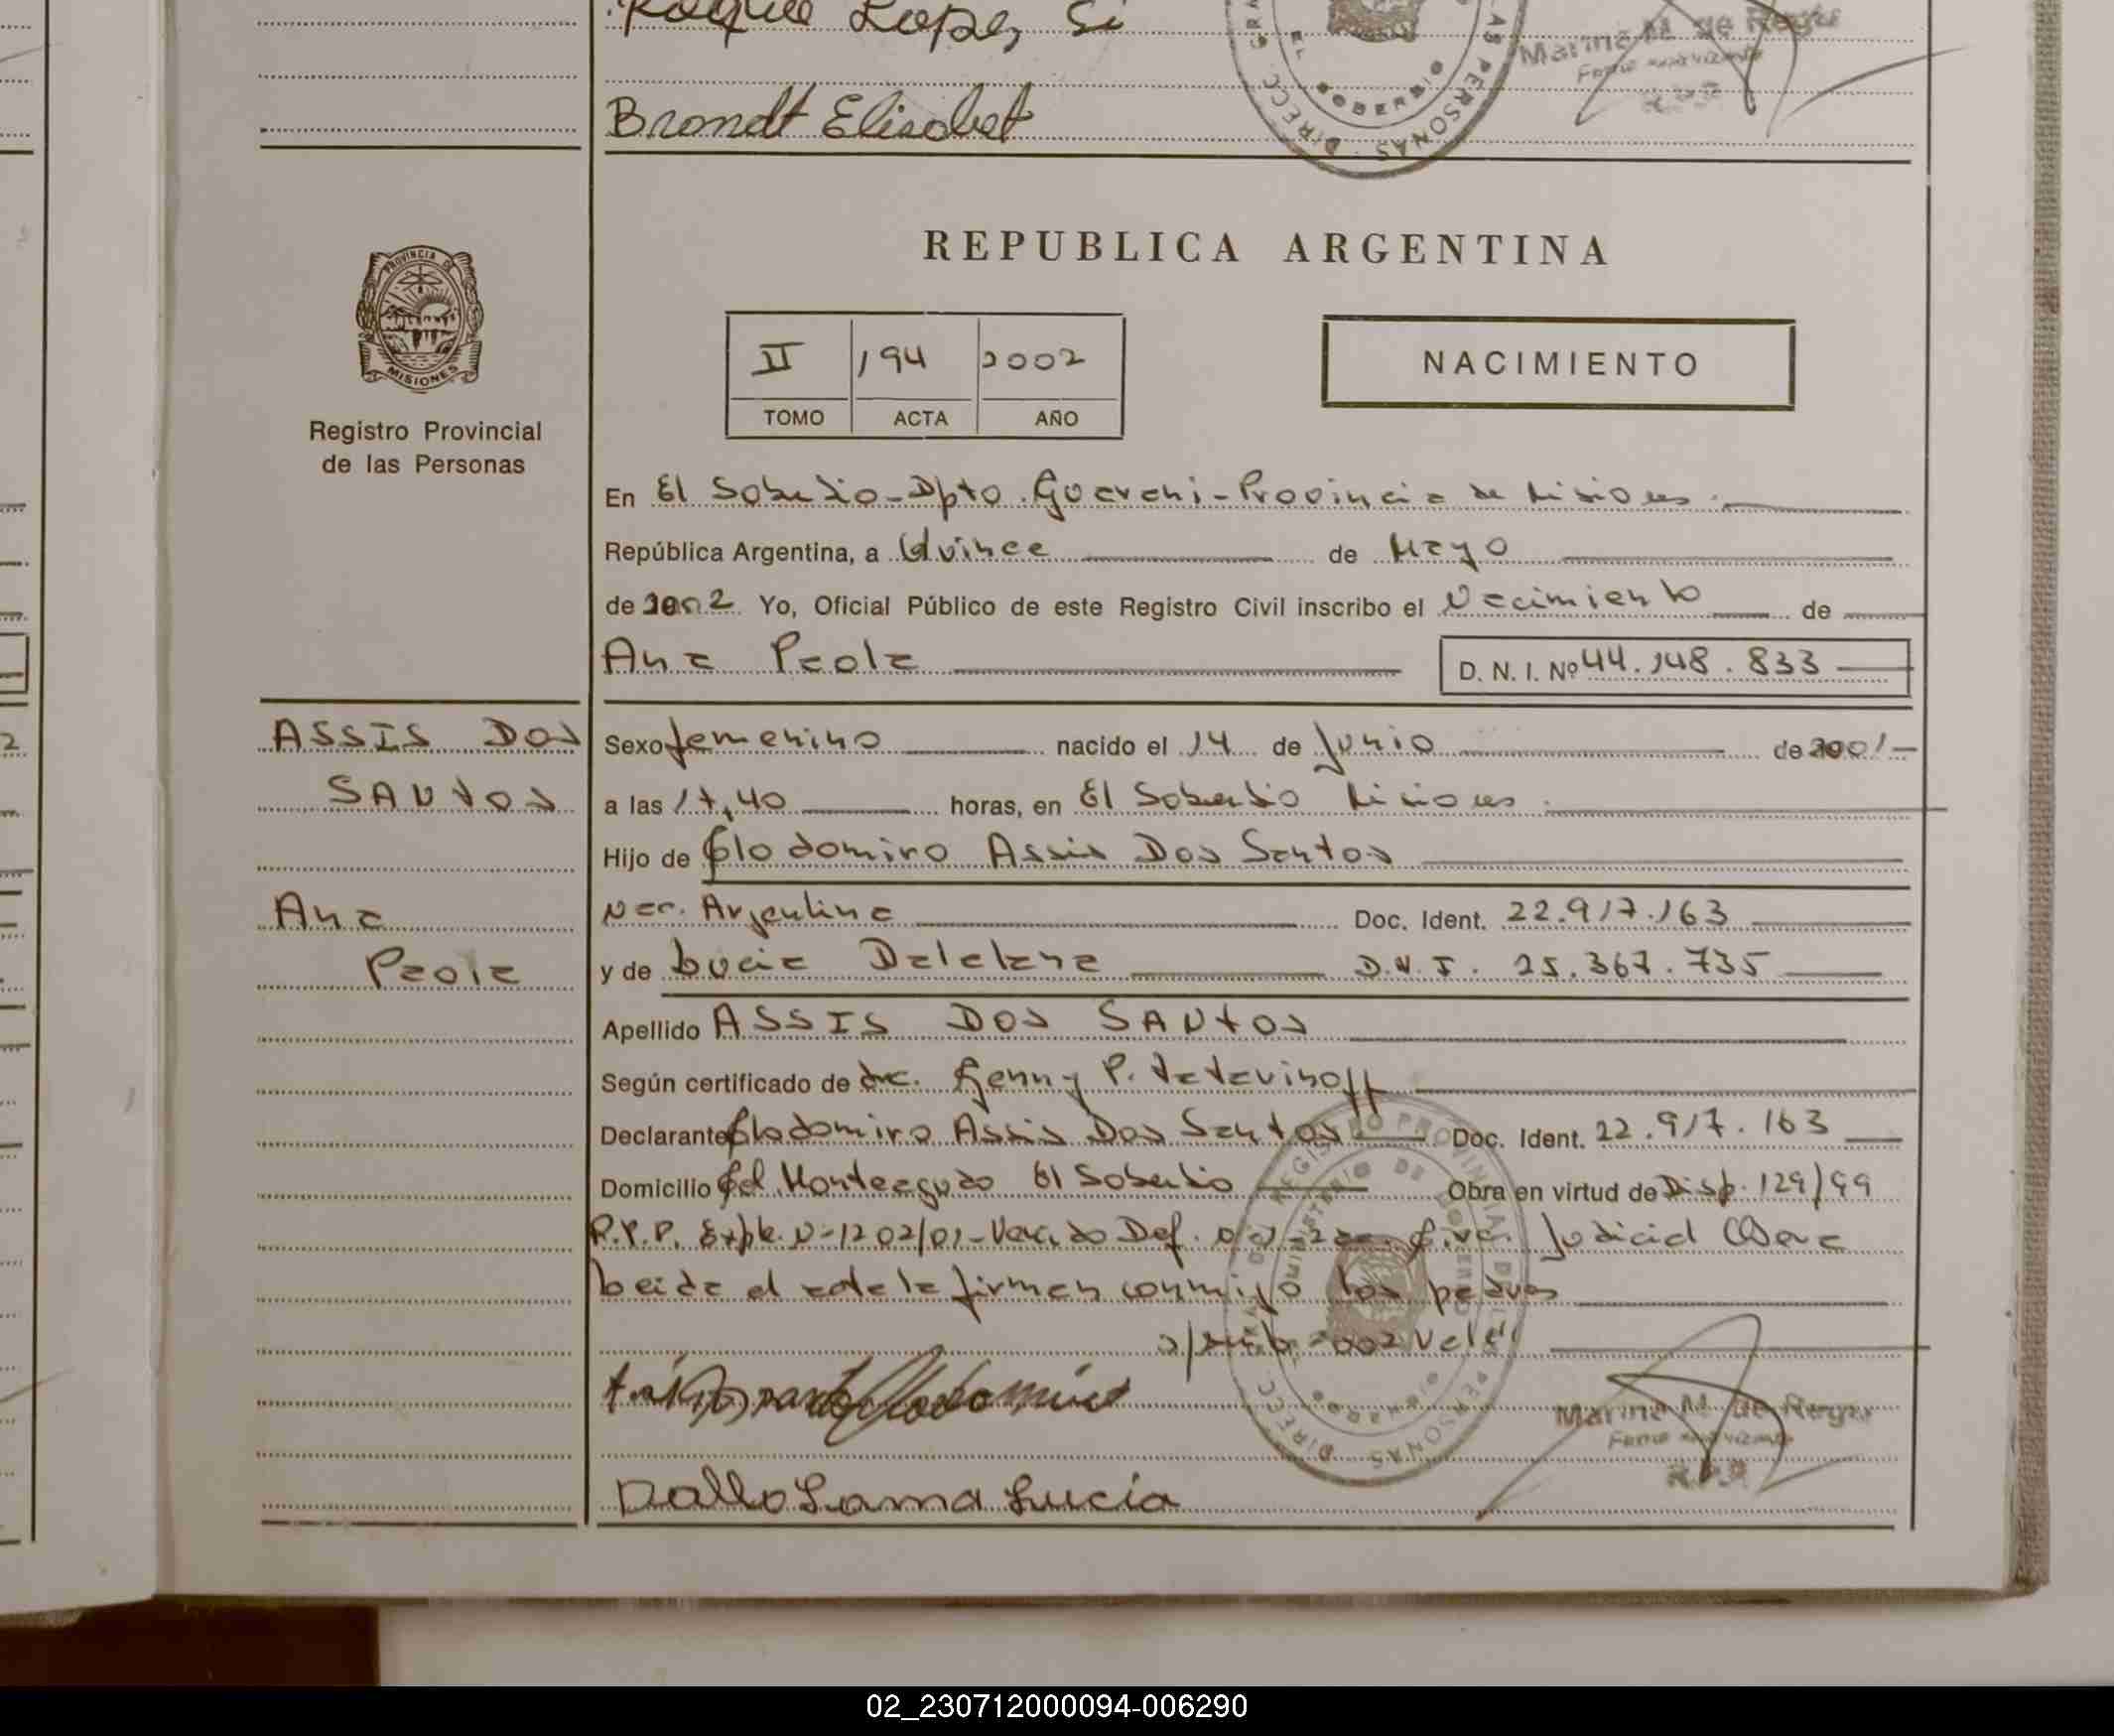 Lopez, Si
Marina M. de Reyes
Brondt Elisabet
EL SOBERBIO
DIRECC. GRAL. DE LAS PERSONAS
REPUBLICA ARGENTINA
PROVINCIA DE
MISIONES
Registro Provincial
de las Personas
II 194 2002
TOMO ACTA AÑO
NACIMIENTO
En El Soberbio - Dpto. Guarani - Provincia de Misiones.
República Argentina, a Quince de Mayo
de 2002 Yo, Oficial Público de este Registro Civil inscribo el Nacimiento de
Ana Paola D. N. I. Nº 44.148.833
ASSIS DOS
SANTOS
Ana
Paola
Sexo femenino nacido el 14 de Junio de 2001
a las 17,40 horas, en El Soberbio Misiones.
Hijo de Clodomiro Assis Dos Santos
Nac. Argentina Doc. Ident. 22.917.163
y de Lucia D.N.I. 25.367.735
Apellido ASSIS DOS SANTOS
Según certificado de Genny P.
Declarante Clodomiro Assis Dos Santos Doc. Ident. 22.917.163
Domicilio Cnel. Monteagudo El Soberbio Obra en virtud de Disp. 129/99
R.P.P. Expte. N-1202/01- Def. Judicial Obera
Leida el acta la firman conmigo los padres
2002 Vale
Clodomiro
Marina M. de Reyes
R.P.P.
Dalla Lama Lucia
REGISTRO PROVINCIAL DE LAS PERSONAS
MINISTERIO DE GOBIERNO
02_230712000094-006290